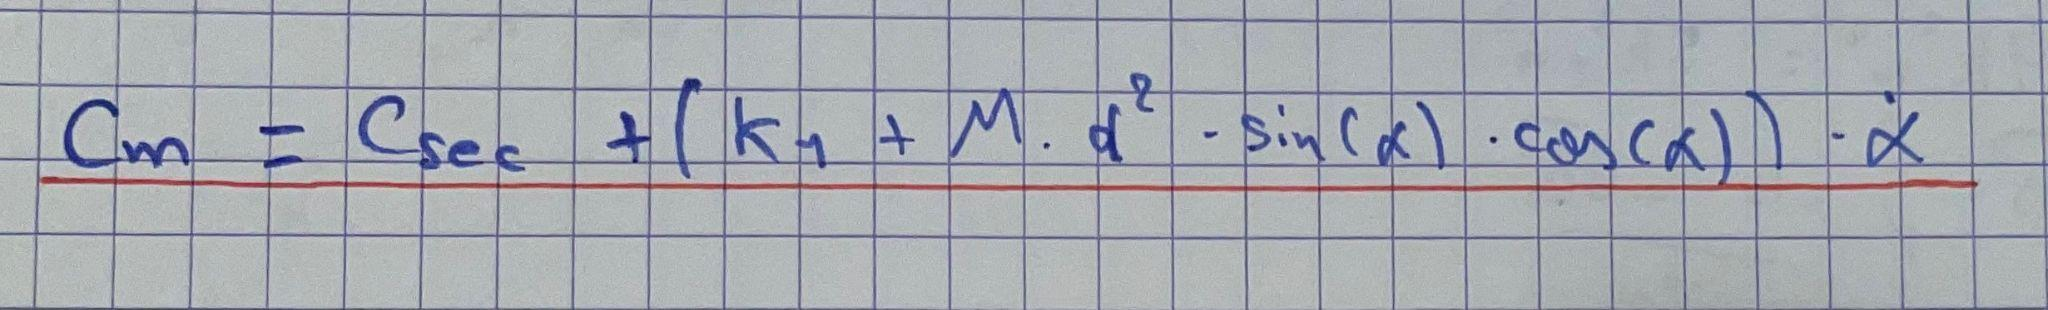 Cm = Csec + (k1 + M · d² · sin(α) · cos(α)) · α̇